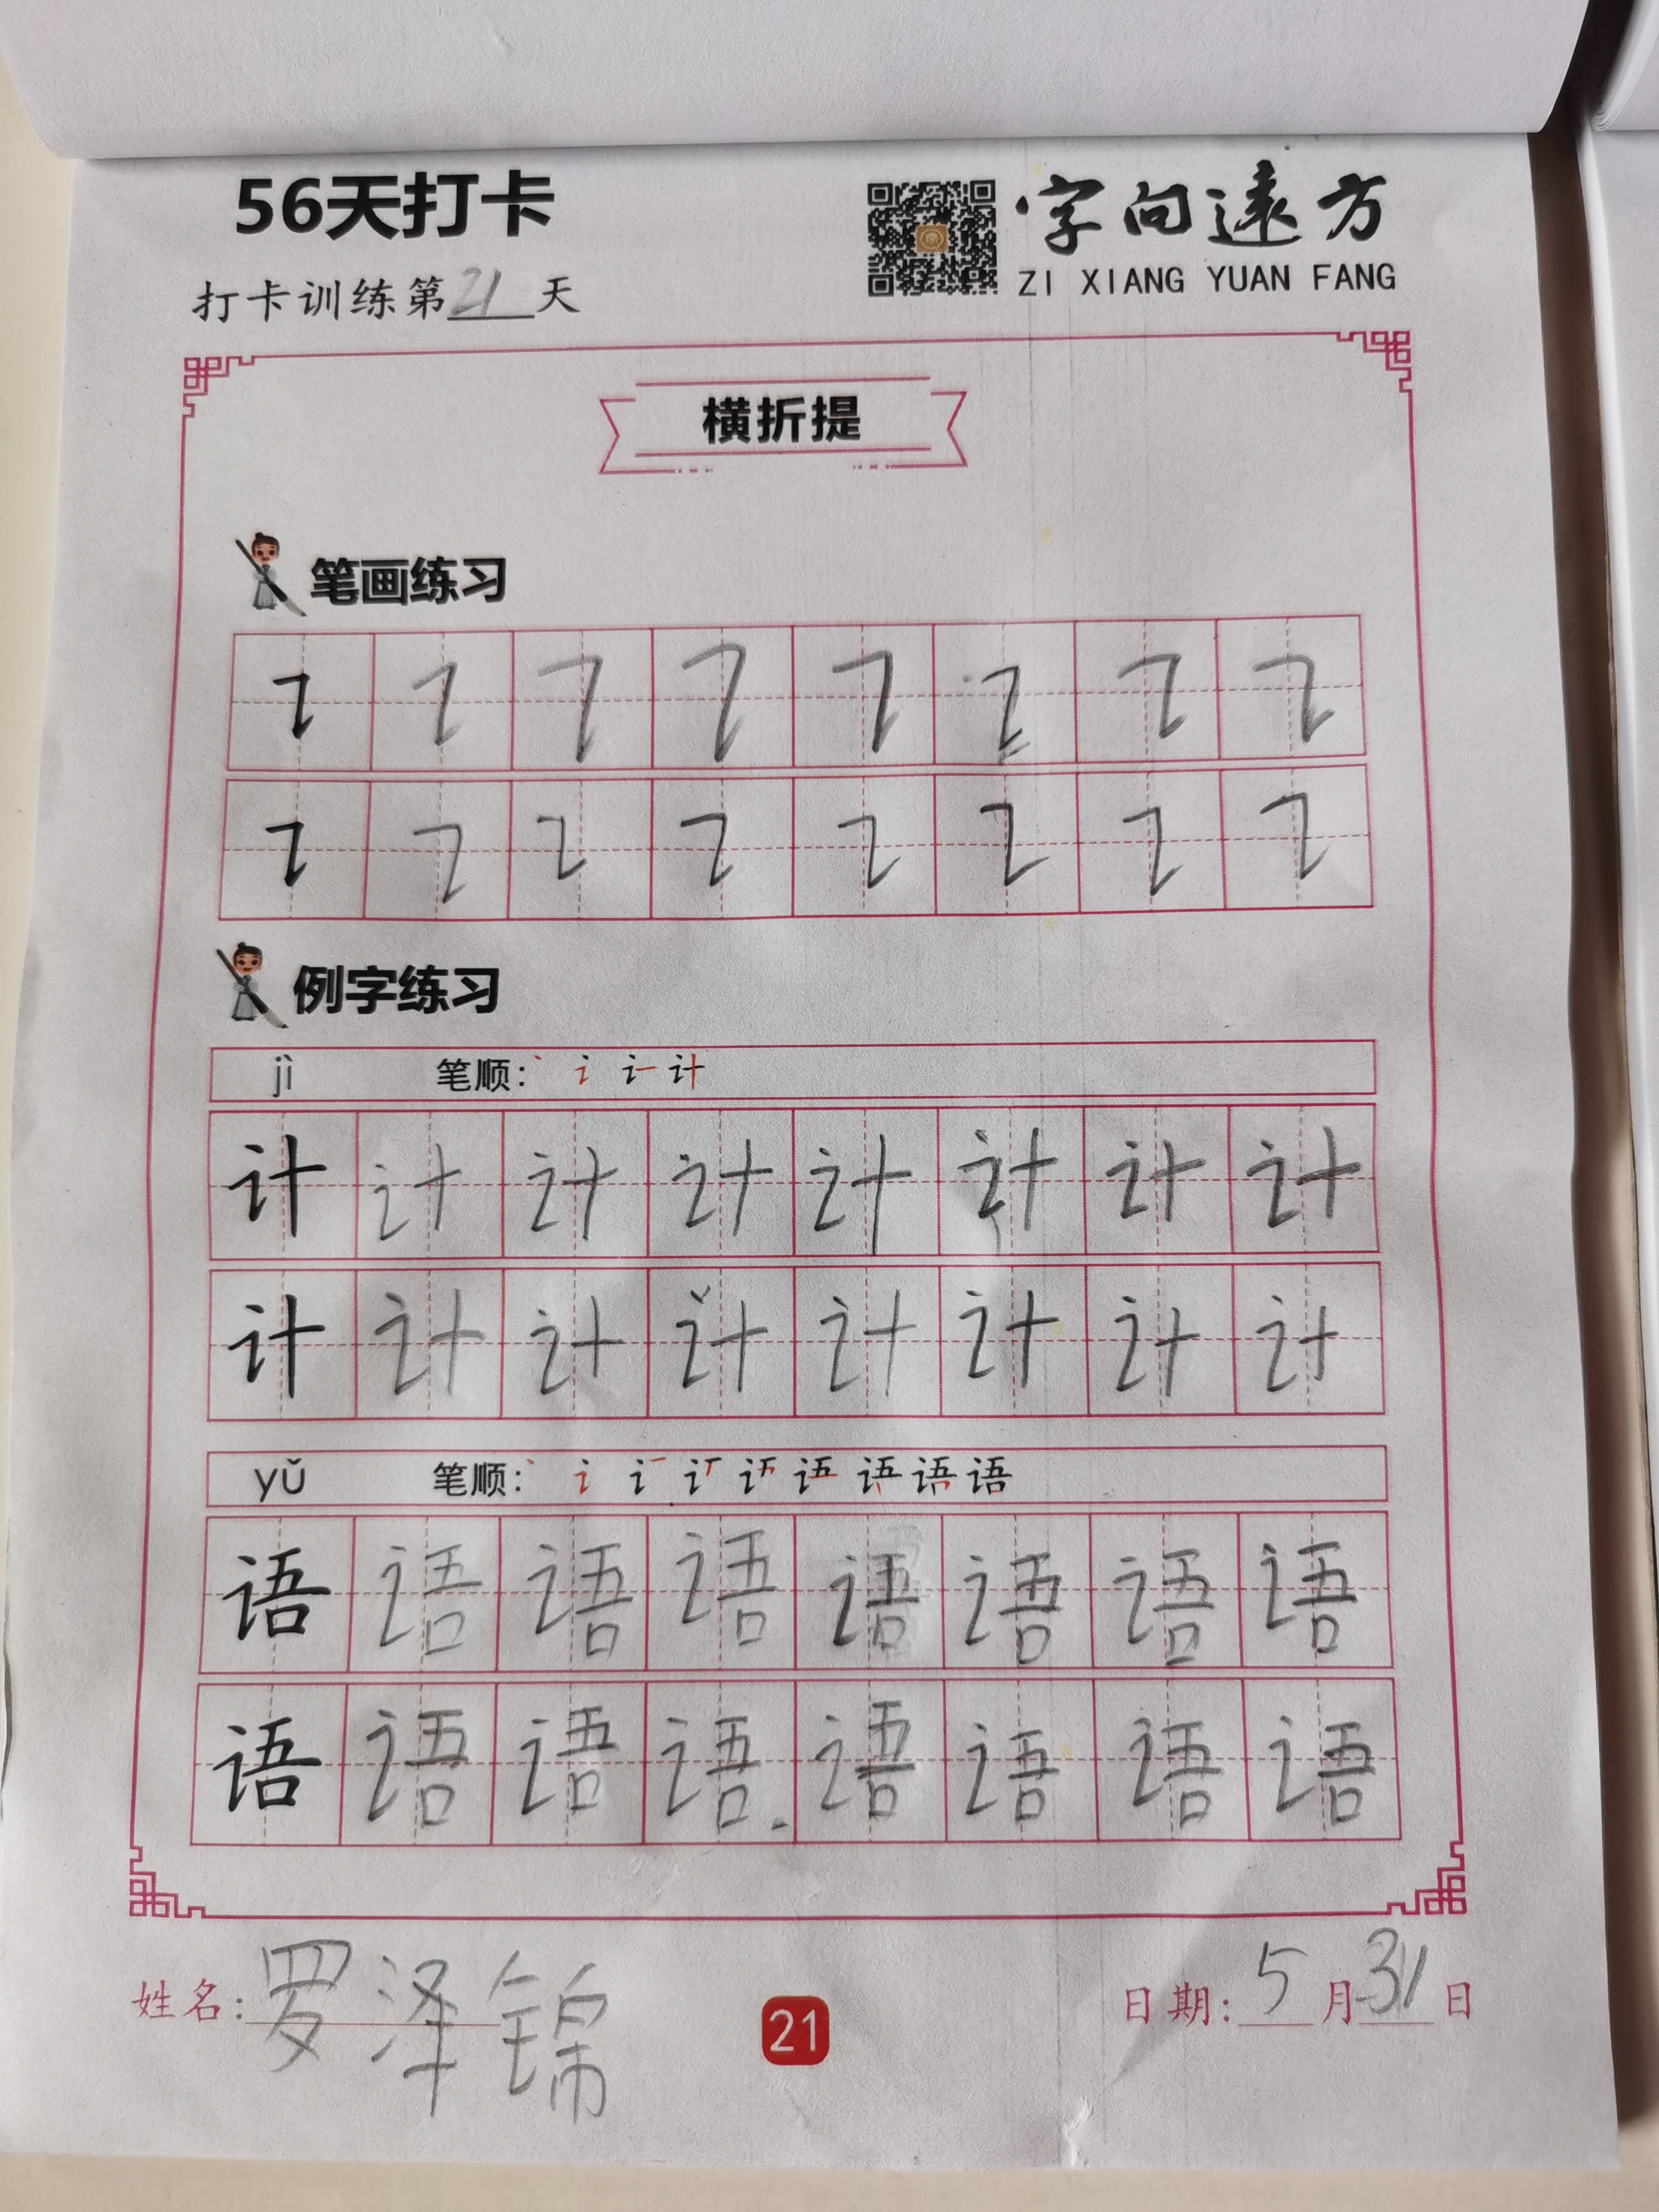 56天打卡
字向遠方
ZI XIANG YUAN FANG
打卡训练第21天
横折提
笔画练习
例字练习
jì 笔顺:
计 计 计 计 计 计 计 计
计 计 计 计 计 计 计 计
yǔ 笔顺: 语
语 语 语 语 语 语 语 语
语 语 语 语 语 语 语 语
姓名: 罗泽锦
21
日期: 5月31日